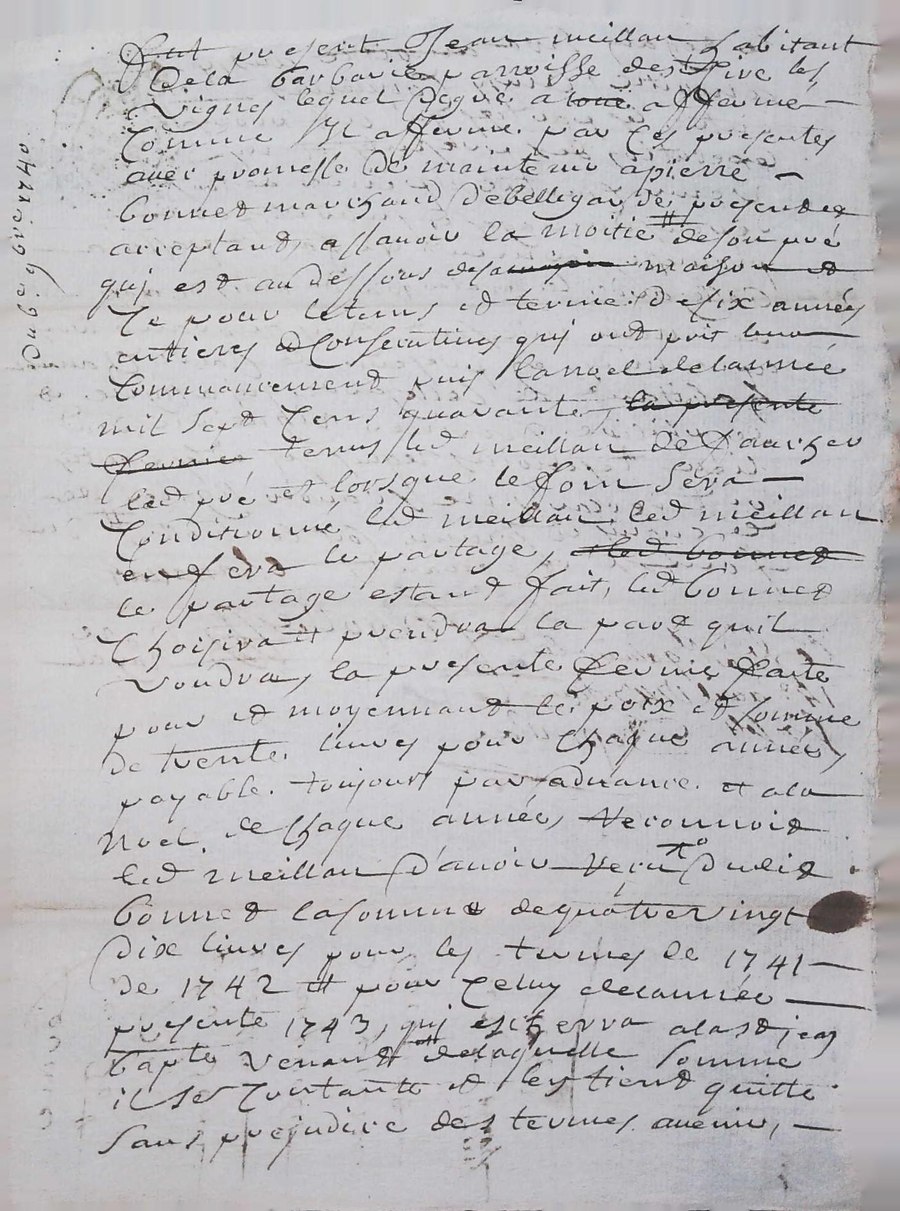 fut present Jean meillau habitant
de la barbarie parroisse de St hire les
vignes lequel de gré a loué affermé
Comme Il afferme par Ces presentes
avec promesse de maintenir a pierre
bonnet marchand de bellegarde presente et
acceptant, assavoir la moitié de son pré
qui est au dessous de sa maison maison et
Ce pour le tems et terme de six années
entieres et Consecutives qui ont prit leur
Commancement puis la noel de lannée
mil sept Cens quarante, la presente
ferme tenus led meillau de faucher
led pré et lorsque le foin sera
Conditionné led meillau led meillau
en fera le partage, led bonnet
le partage estant fait, led bonnet
Choisira et prendra la part quil
voudra, la presente ferme faite
pour et moyennant le prix et somme
de trente livres pour chaque année,
payable toujours par advance et a la
Noel de chaque année, Reconnoit
led meillau d'avoir Reçu dudit
bonnet la somme de quatre vingt
dix livres pour les termes de 1741
de 1742 et pour Celuy de lannée
presente 1743, qui escherra a la St jean
bapte venant de laquelle somme
il se Contante et les tient quitte
sans prejudice des termes avenir,